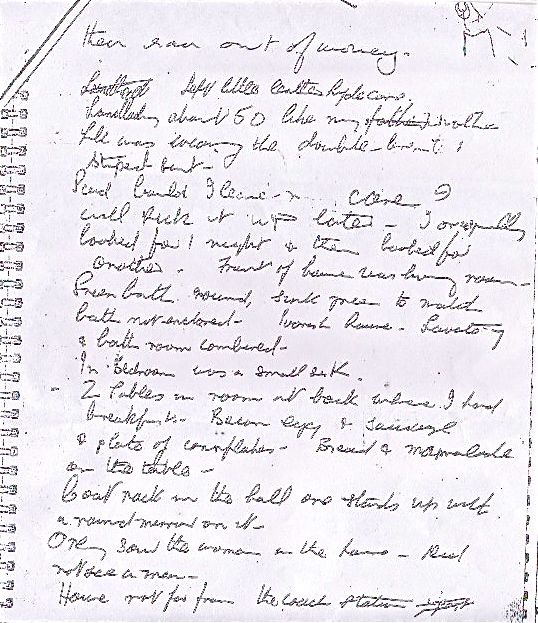 then ran out of money.
Left little leather
Landlady about 50 like my mother
He was wearing the double-
striped suit -
Said could I leave case &
will pick it up later - I originally
booked for 1 night & then booked for
another. Front of house was living room -
Green bath round, sink green to match
bath not enclosed - house - Lavatory
& bath room combined -
In Bedroom was a small sink.
- 2 Tables in room at back where I had
breakfasts - Bacon egg & sausage
& plate of cornflakes - Bread & marmalade
on the table -
Coat rack in the hall one stands up with
a round mirror on it -
Only saw the woman in the house - Did
not see a man -
House not far from the coach station